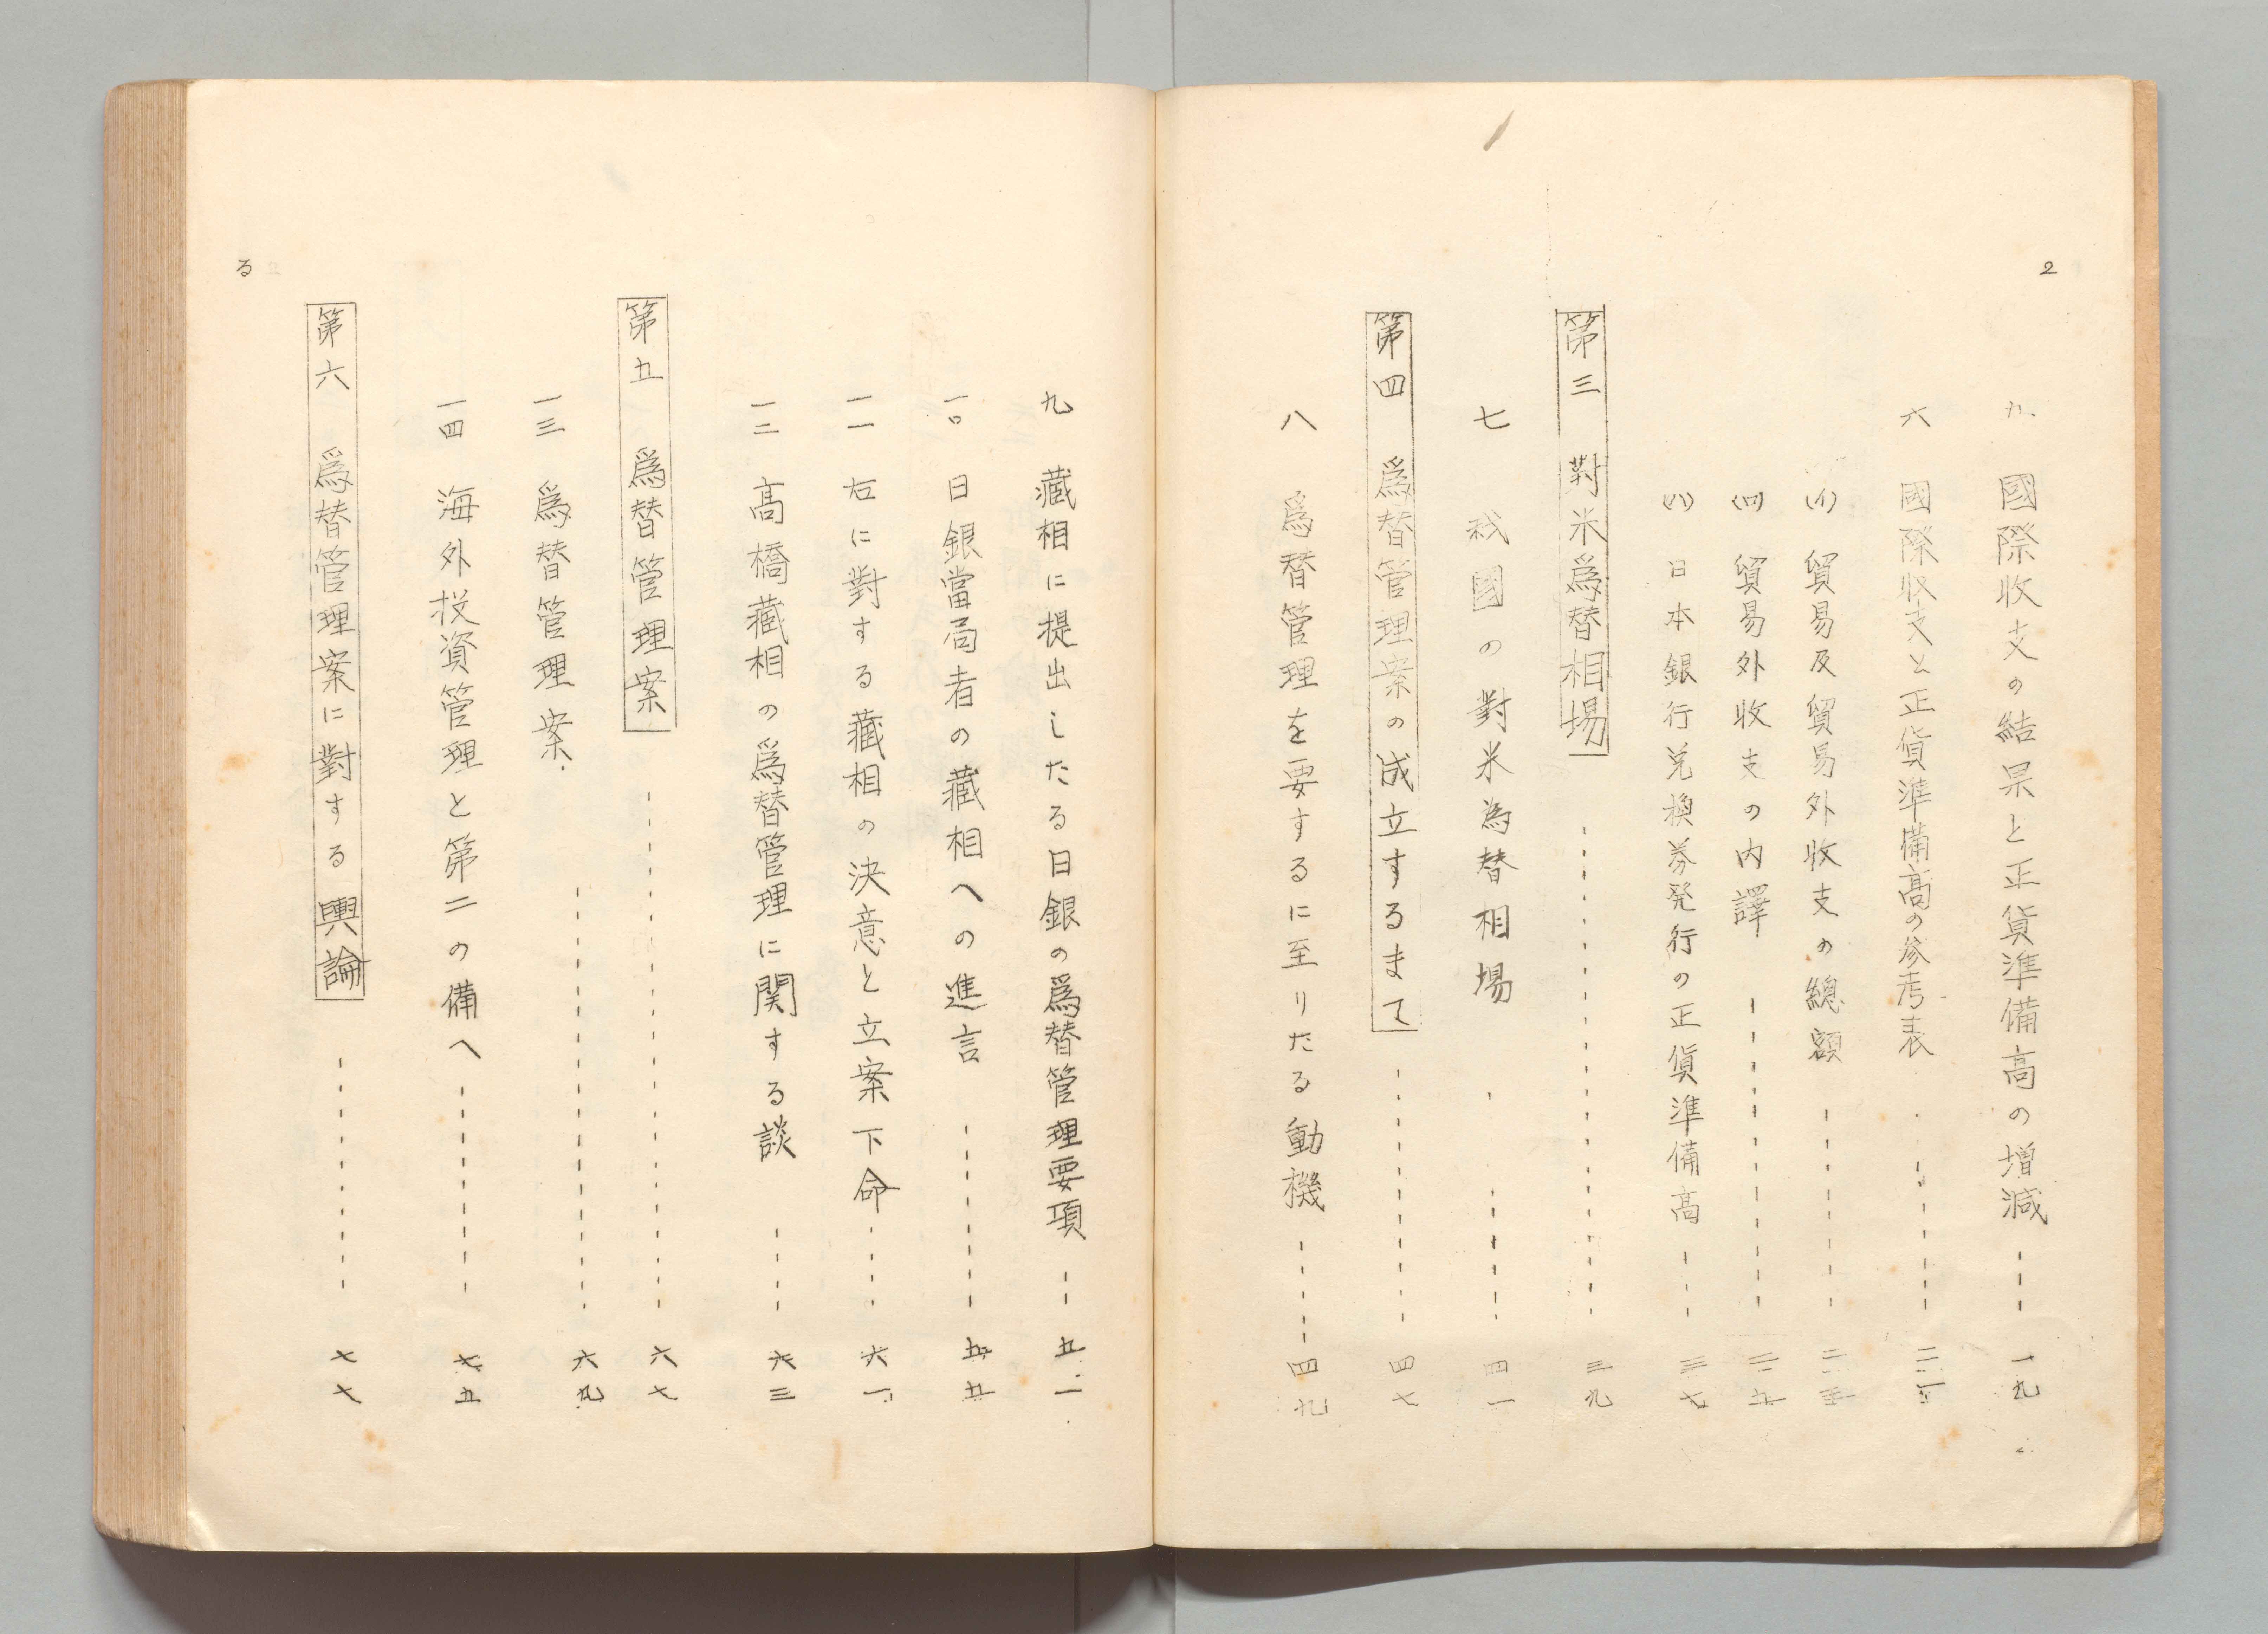 2
五、國際收支の結果と正貨準備高の増減 一九
六 國際收支と正貨準備高の參考表
(イ) 貿易及貿易外收支の總額
(ロ) 貿易外收支の内譯
(ハ) 日本銀行兌換券発行の正貨準備高 三七
第三 對米爲替相場 三九
七 我國の對米為替相場 四一
第四 爲替管理案の成立するまて 四七
八 爲替管理を要するに至りたる動機 四九
九 藏相に提出したる日銀の爲替管理要項 五一
一〇 日銀當局者の藏相への進言 五五
一一 右に對する藏相の決意と立案下命 六一
一二 高橋藏相の爲替管理に関する談 六三
第五 爲替管理案 六七
一三 爲替管理案 六九
一四 海外投資管理と第二の備へ 七五
第六 爲替管理案に對する輿論 七七